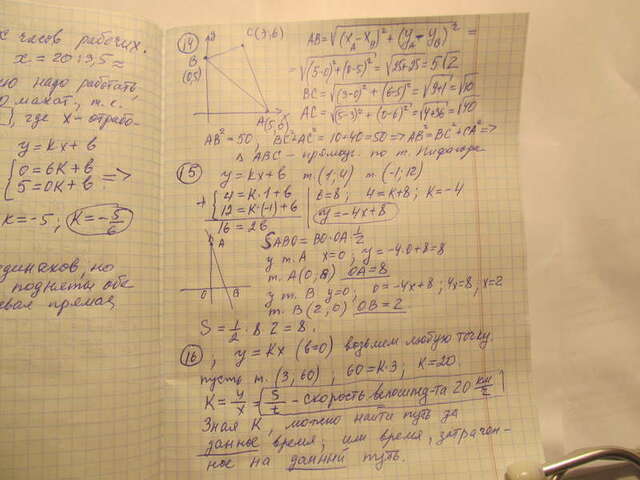 х часов рабочих.
x = 20:3,5 =
надо работать
махат., т.е.
где x - отрабо-
y = kx + b
{0 = 6k + b
{5 = 0k + b =>
k = -5; k = -5/6
динаков, но
подняты обе
прямая,
14
y
C(3;6)
B
(0;5)
A(5;0)
AB = √(x_A - x_B)² + (y_A - y_B)² =
= √(5-0)² + (0-5)² = √25+25 = 5√2
BC = √(3-0)² + (6-5)² = √9+1 = √10
AC = √(5-3)² + (0-6)² = √4+36 = √40
AB² = 50, BC² + AC² = 10 + 40 = 50 => AB² = BC² + CA² =>
Δ ABC - прямоуг. по т. Пифагора
15
y = kx + b т.(1; 4) т.(-1; 12)
+ {4 = k·1 + b
{12 = k·(-1) + b
16 = 2b
b = 8; 4 = k + 8; k = -4
y = -4x + 8
A
O
B
SABO = BO·OA·1/2
у т. A x = 0; y = -4·0 + 8 = 8
т. A(0, 8) OA = 8
у т. B y = 0; 0 = -4x + 8; 4x = 8; x = 2
т. B(2; 0) OB = 2
S = 1/2 · 8 · 2 = 8.
16
, y = kx (b = 0) возьмем любую точку.
пусть т.(3, 60), 60 = k·3; k = 20.
k = y/x = S/t - скорость велосипед-та 20 км/ч
Зная k, можно найти путь за
данное время; или время, затрачен-
ное на данный путь.